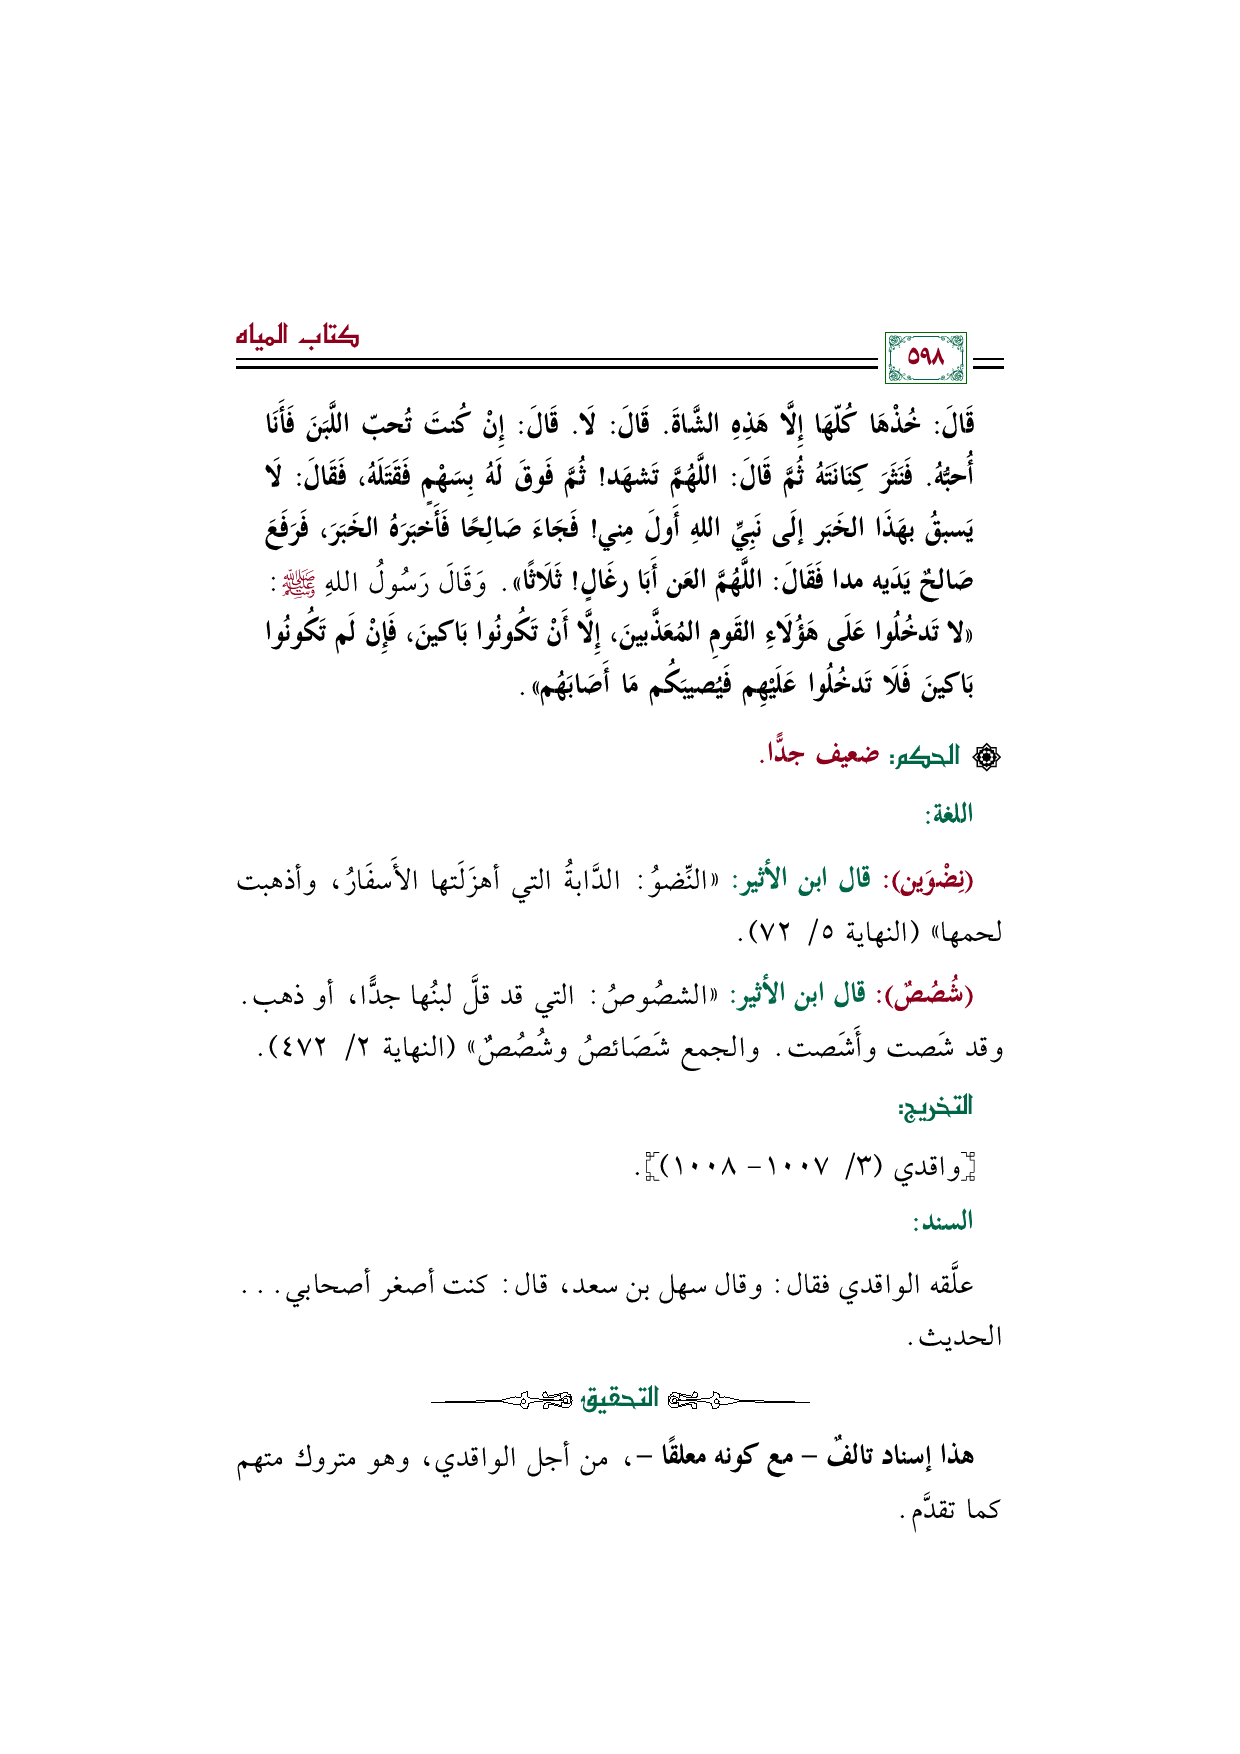 كتاب المياه
٥٩٨
قَالَ: خُذْهَا كُلّهَا إِلَّا هَذِهِ الشَّاةَ. قَالَ: لَا. قَالَ: إِنْ كُنتَ تُحبّ اللَّبَنَ فَأَنَا
أُحبُّهُ. فَنَثَرَ كِنَانَتَهُ ثُمَّ قَالَ: اللَّهُمَّ تَشهَد! ثُمَّ فَوقَ لَهُ بِسَهْمٍ فَقَتَلَهُ، فَقَالَ: لَا
يَسبقُ بهَذَا الخَبَر إلَى نَبِيِّ اللهِ أَولَ مِني! فَجَاءَ صَالِحًا فَأَخبَرَهُ الخَبَرَ، فَرَفَعَ
صَالحٌ يَدَيه مدا فَقَالَ: اللَّهُمَّ العَن أَبَا رغَالٍ! ثَلَاثًا». وَقَالَ رَسُولُ اللهِ ﷺ:
«لا تَدخُلُوا عَلَى هَؤُلَاءِ القَومِ المُعَذَّبينَ، إِلَّا أَنْ تَكُونُوا بَاكينَ، فَإِنْ لَم تَكُونُوا
بَاكينَ فَلَا تَدخُلُوا عَلَيْهِم فَيُصيبَكُم مَا أَصَابَهُم».
الحكم: ضعيف جدًّا.
اللغة:
(نِضْوَين): قال ابن الأثير: «النِّضوُ: الدَّابةُ التي أهزَلَتها الأَسفَارُ، وأذهبت
لحمها» (النهاية ٥/ ٧٢).
(شُصُصٌ): قال ابن الأثير: «الشصُوصُ: التي قد قلَّ لبنُها جدًّا، أو ذهب.
وقد شَصت وأَشَصت. والجمع شَصَائصُ وشُصُصٌ» (النهاية ٢/ ٤٧٢).
التخريج:
[واقدي (٣/ ١٠٠٧– ١٠٠٨)].
السند:
علَّقه الواقدي فقال: وقال سهل بن سعد، قال: كنت أصغر أصحابي...
الحديث.
التحقيق
هذا إسناد تالفٌ – مع كونه معلقًا –، من أجل الواقدي، وهو متروك متهم
كما تقدَّم.